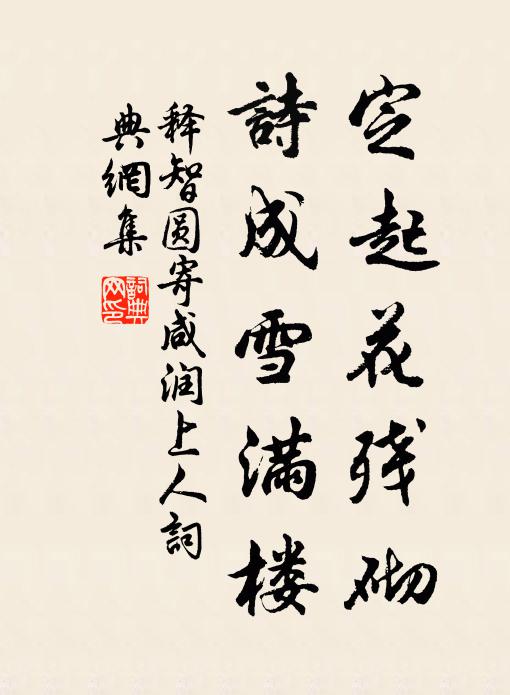 定起花残砌
詩成雪满楼
释智圆寄咸润上人詞
典網集
詞典网印